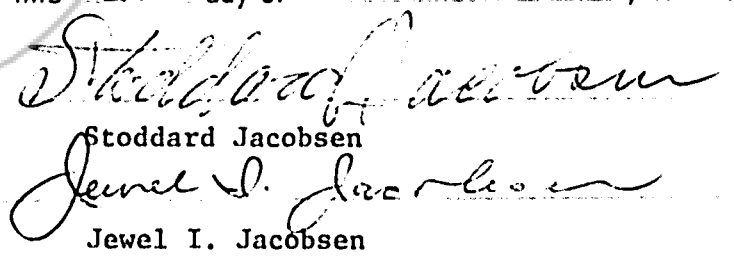 day of
Stoddard Jacobsen
Stoddard Jacobsen
Jewel I. Jacobsen
Jewel I. Jacobsen